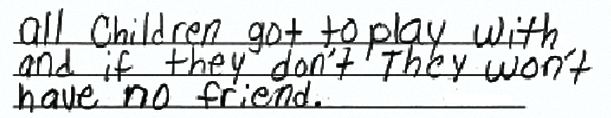 all Children got to play with
and if they don't They won't
have no friend.